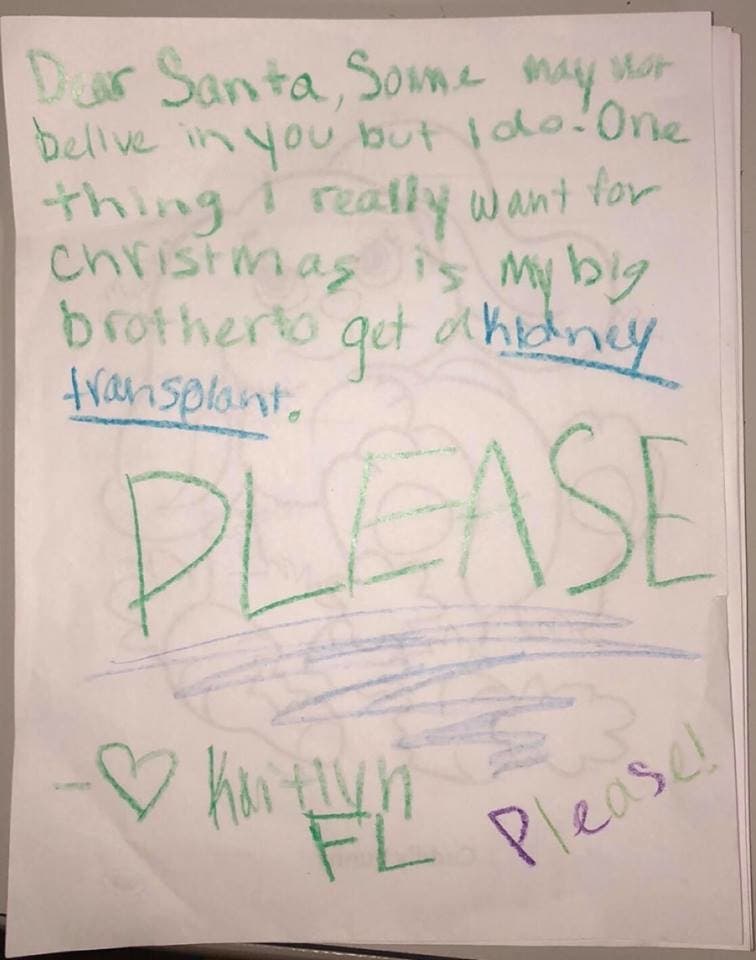 Dear Santa, Some may not
belive in you but I do. One
thing I really want for
christmas is my big
brother to get a kidney
transplant.
PLEASE
- ♡ Kaitlyn
FL
Please!